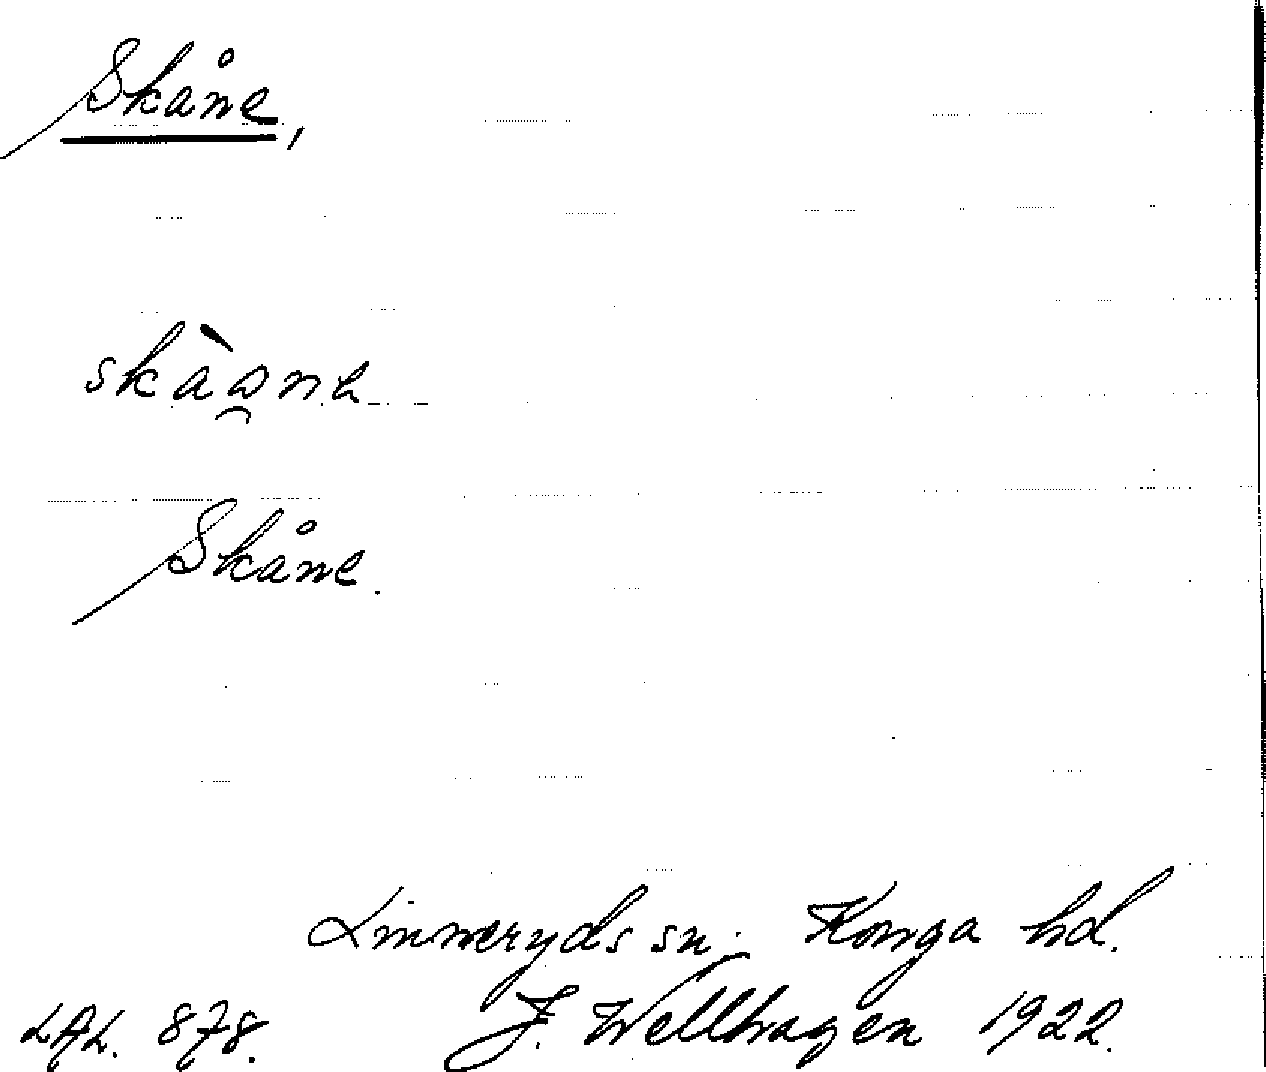 Skåne,
skàone
Skåne.
Linneryds sn. Konga hd.
LAL. 878. J. Wellhagen 1922.